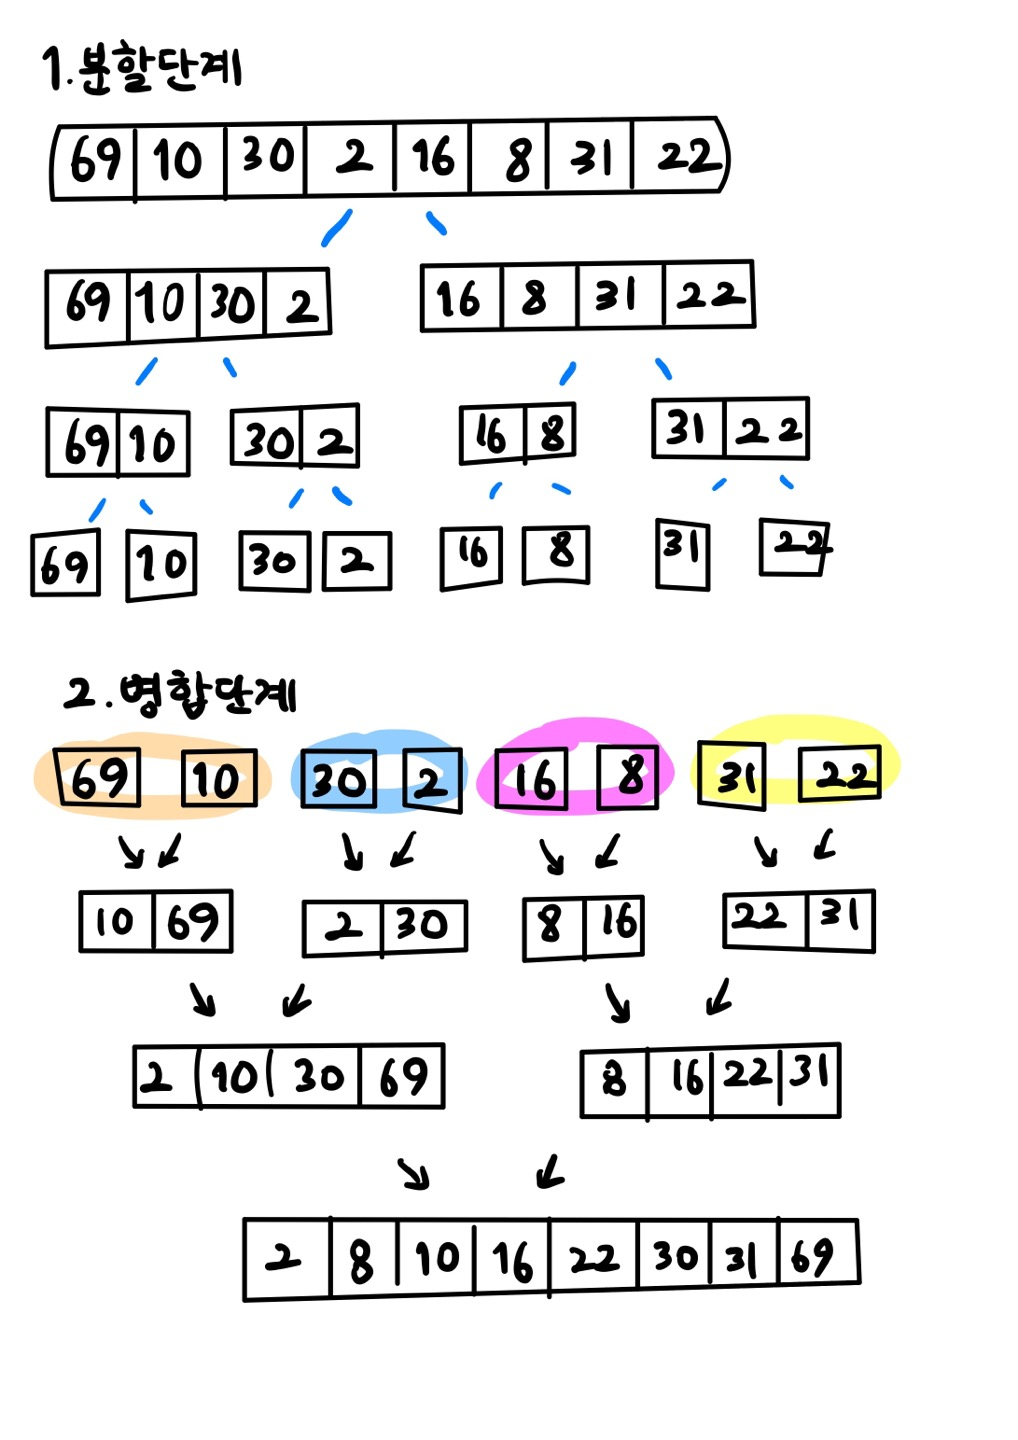 1.분할단계
69 10 30 2 16 8 31 22
69 10 30 2 16 8 31 22
69 10 30 2 16 8 31 22
69 10 30 2 16 8 31 22
2.병합단계
69 10 30 2 16 8 31 22
10 69 2 30 8 16 22 31
2 10 30 69 8 16 22 31
2 8 10 16 22 30 31 69